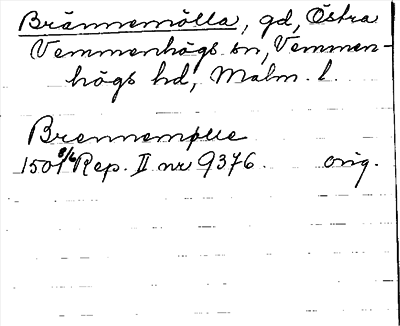 Brännemölla, gd, Östra
Vemmenhögs sn, Vemmen-
högs hd, Malm. l.
Brennemølle
1501 8/6 Rep. II nr 9376. orig.